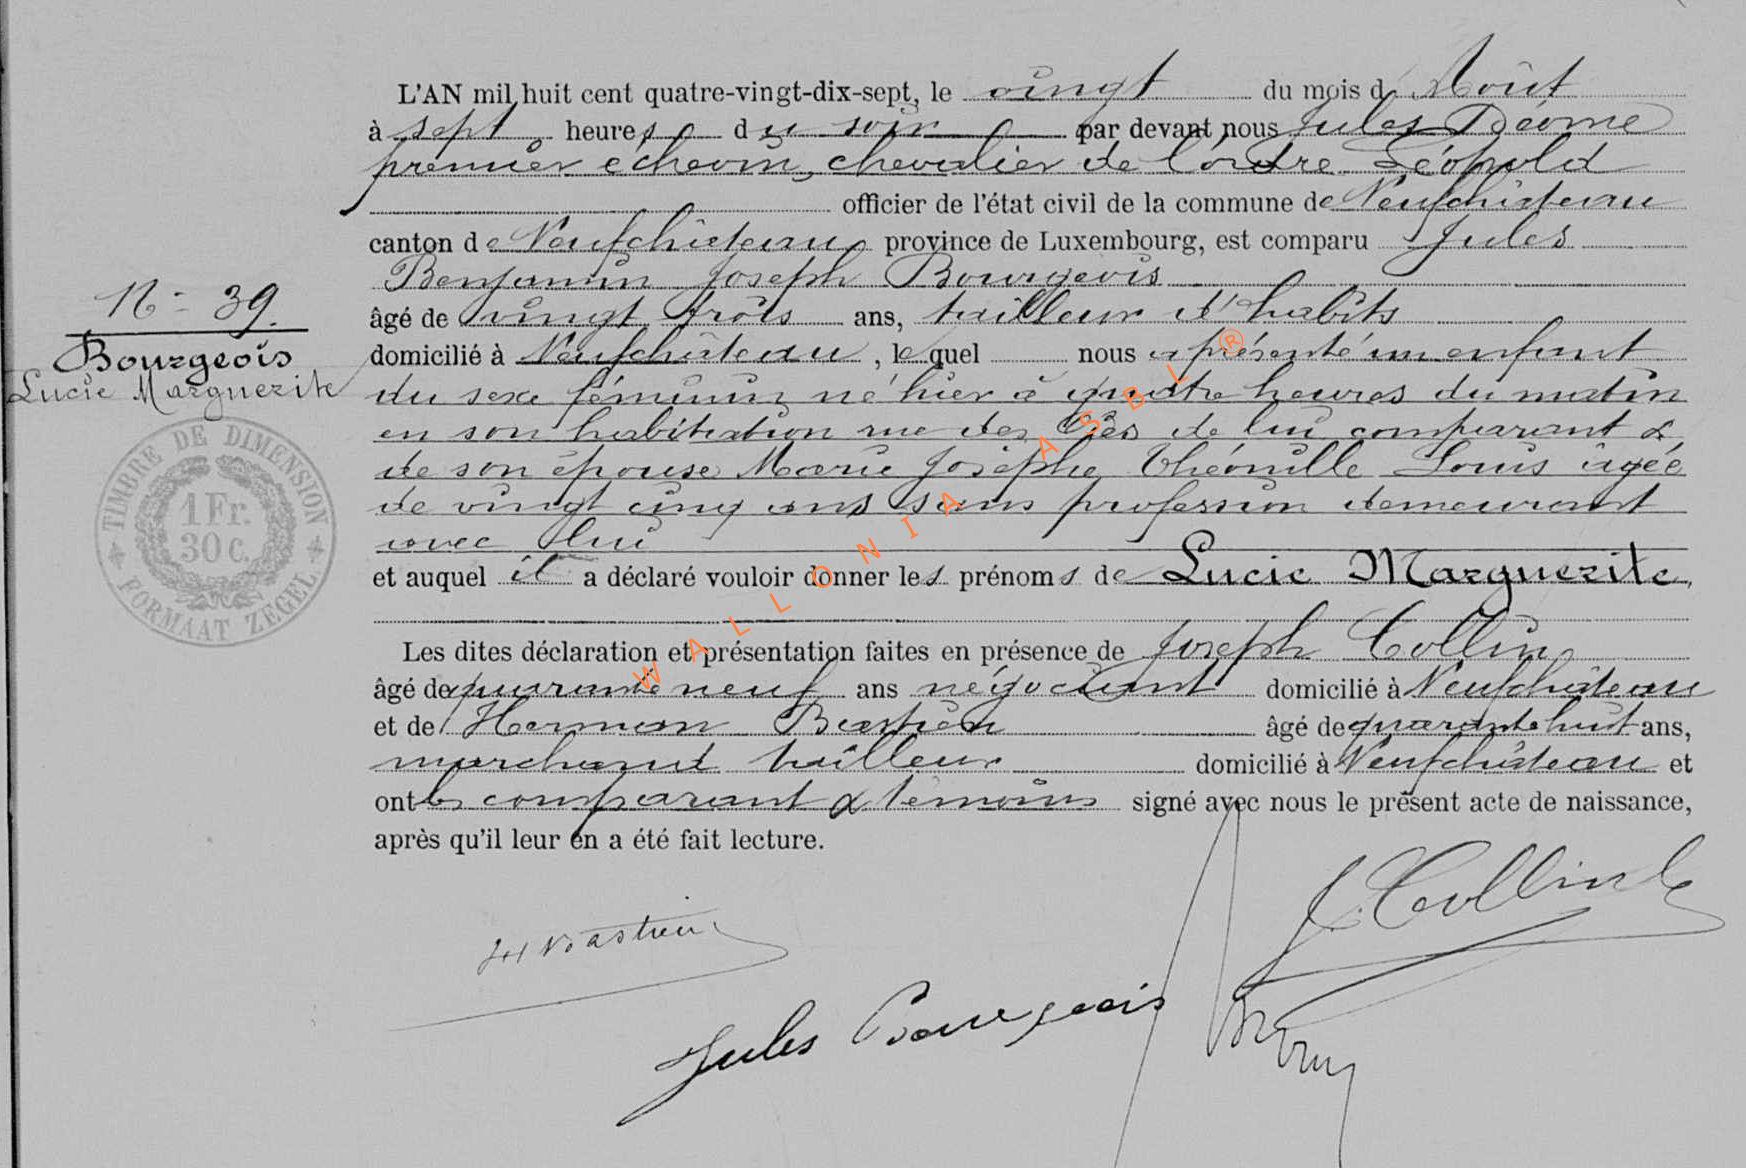 L'AN mil huit cent quatre-vingt-dix-sept, le vingt du mois d'Août
à sept heures du soir par devant nous Jules
premier échevin, chevalier de l'ordre Léopold
officier de l'état civil de la commune de Neufchâteau
canton de Neufchâteau, province de Luxembourg, est comparu Jules
Benjamin Joseph Bourgeois
N° 39.
âgé de vingt trois ans, tailleur d'habits
Bourgeois
Lucie Marguerite
domicilié à Neufchâteau, lequel nous a présenté un enfant
du sexe féminin né hier à quatre heures du matin
en son habitation rue des de lui comparant &
de son épouse Marie Josèphe Louis âgée
de vingt cinq ans sans profession demeurant
avec lui
et auquel il a déclaré vouloir donner les prénoms de Lucie Marguerite,
TIMBRE DE DIMENSION
1 Fr.
30 c.
FORMAAT ZEGEL
Les dites déclaration et présentation faites en présence de Joseph Collin
âgé de quarante neuf ans négociant domicilié à Neufchâteau
et de Herman Bastien âgé de quarante huit ans,
marchand tailleur domicilié à Neufchâteau et
ont les comparant & témoins signé avec nous le présent acte de naissance,
après qu'il leur en a été fait lecture.
J. Collin
H Bastien
Jules Bourgeois
WALLONIA ASBL ®